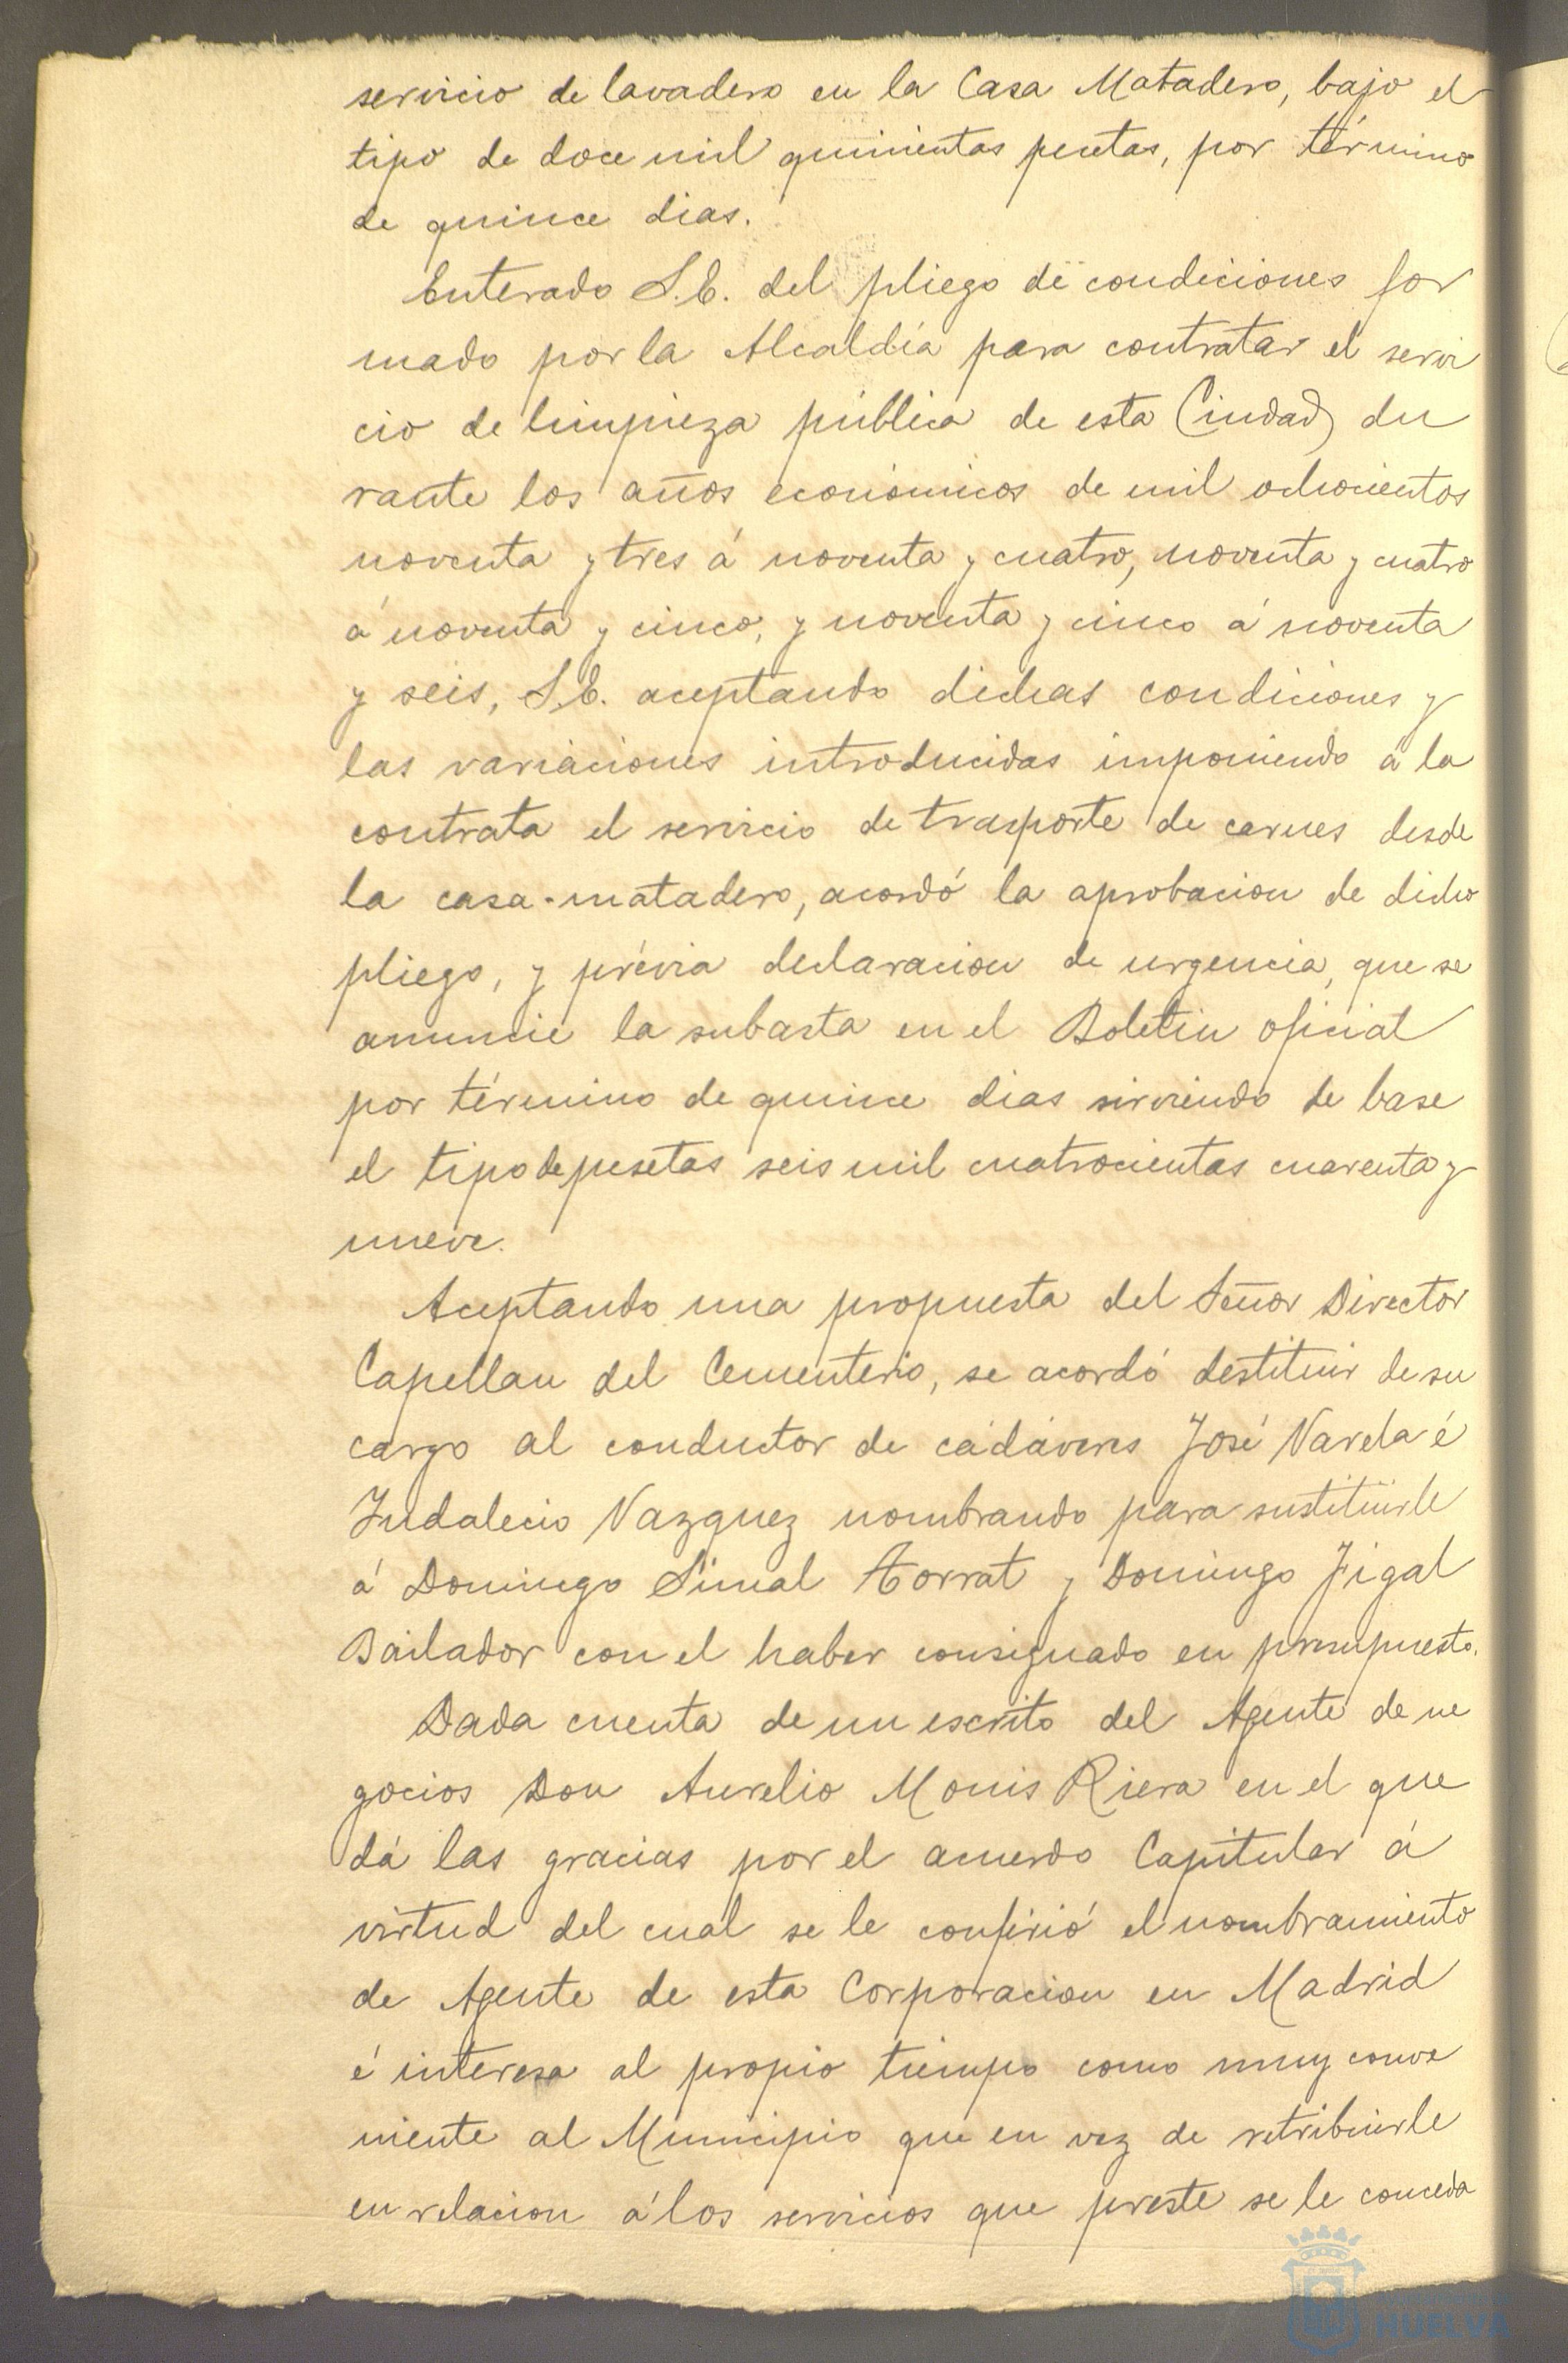 servicio de lavadero en la Casa Matadero, bajo el
tipo de doce mil quinientas pesetas, por término
de quince dias.
Enterado S.E. del pliego de condiciones for
mado por la Alcaldía para contratar el servi
cio de limpieza pública de esta Ciudad du
rante los años económicos de mil ochocientos
noventa y tres á noventa y cuatro, noventa y cuatro
á noventa y cinco, y noventa y cinco á noventa
y seis, S.E. aceptando dichas condiciones y
las variaciones introducidas imponiendo á la
contrata el servicio de trasporte de carnes desde
la casa-matadero, acordó la aprobacion de dicho
pliego, y prévia declaracion de urgencia, que se
anuncie la subasta en el Boletin oficial
por término de quince dias sirviendo de base
el tipo de pesetas seis mil cuatrocientas cuarenta y
nueve.
Aceptando una propuesta del Señor Director
Capellan del Cementerio, se acordó destituir de su
cargo al conductor de cadáveres José Varela é
Indalecio Vazquez nombrando para sustituirle
á Domingo Simal Torrat y Domingo Figal
Bailador con el haber consignado en presupuesto.
Dada cuenta de un escrito del Agente de ne
gocios Don Aurelio Monis Riera en el que
dá las gracias por el acuerdo Capitular á
virtud del cual se le confirió el nombramiento
de Agente de esta Corporacion en Madrid
é interesa al propio tiempo como muy conve
niente al Municipio que en vez de retribuirle
en relacion á los servicios que preste se le conceda
HUELVA